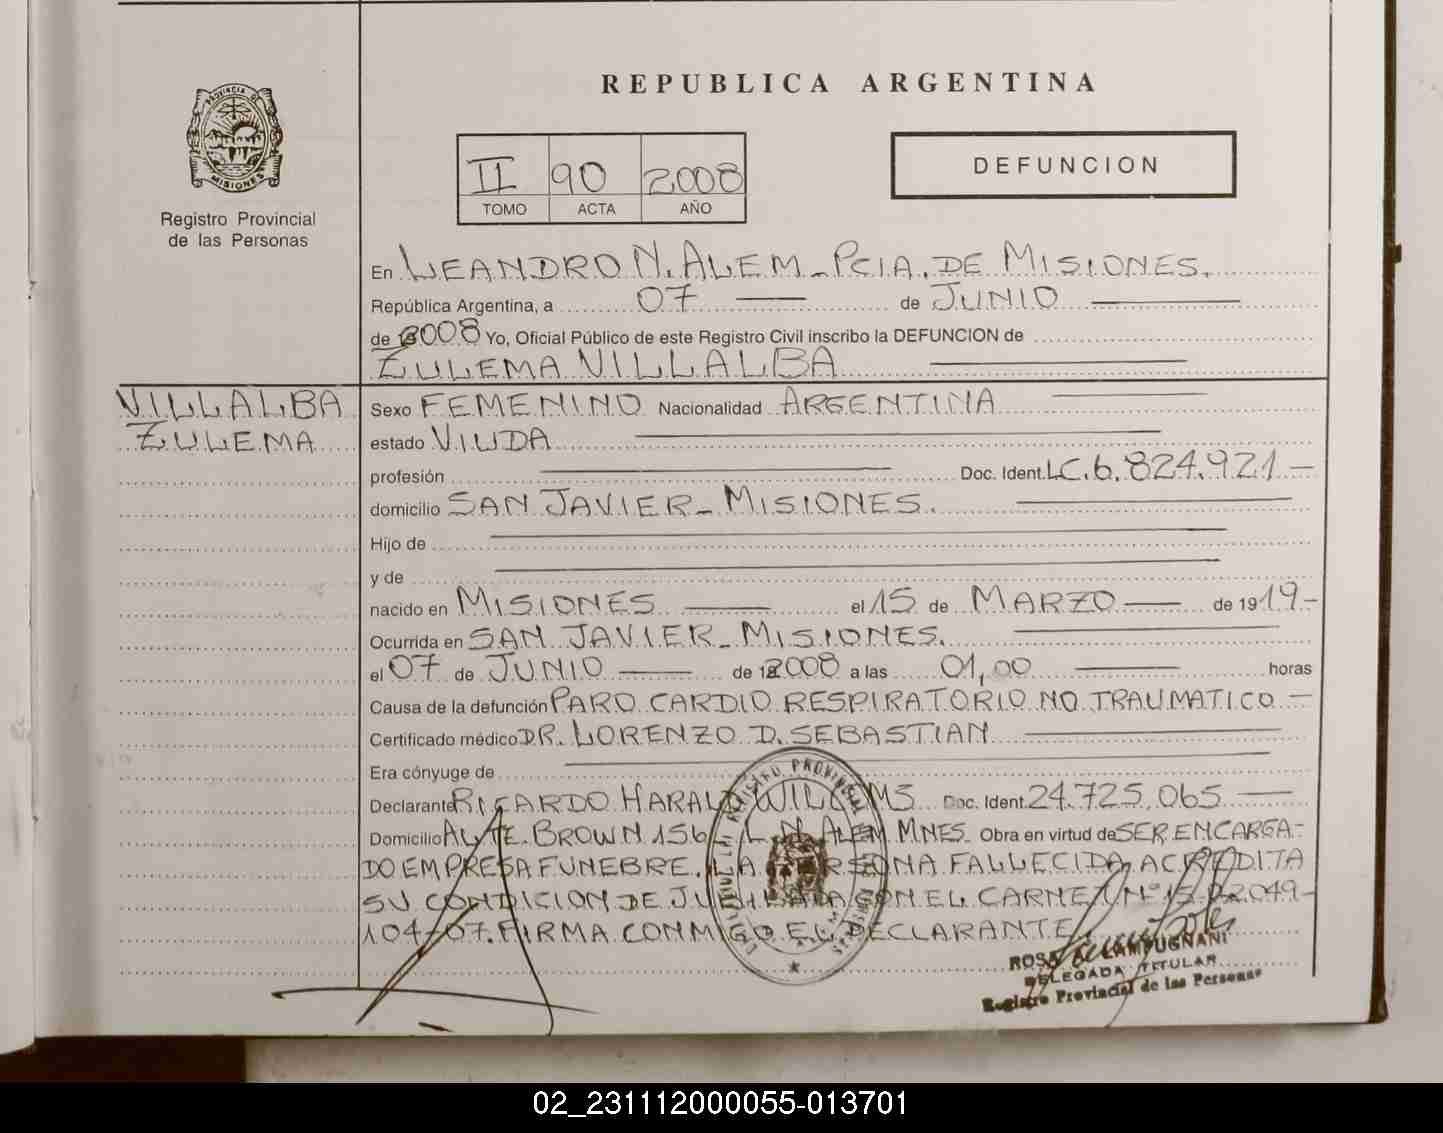 REPUBLICA ARGENTINA
PROVINCIA DE
MISIONES
Registro Provincial
de las Personas
II 90 2008
TOMO ACTA AÑO
DEFUNCION
En LEANDRO N. ALEM - PCIA. DE MISIONES.
República Argentina, a 07 de JUNIO
de 2008 Yo, Oficial Público de este Registro Civil inscribo la DEFUNCION de
ZULEMA VILLALBA
VILLALBA
ZULEMA
Sexo FEMENINO Nacionalidad ARGENTINA
estado VIUDA
profesión Doc. Ident. LC. 6.824.921 -
domicilio SAN JAVIER - MISIONES.
Hijo de
y de
nacido en MISIONES el 15 de MARZO de 1919 -
Ocurrida en SAN JAVIER - MISIONES.
el 07 de JUNIO de 2008 a las 01,00 horas
Causa de la defunción PARO CARDIO RESPIRATORIO NO TRAUMATICO -
Certificado médico DR. LORENZO D. SEBASTIAN
Era cónyuge de
Declarante RICARDO HARALD Doc. Ident. 24.725.065
Domicilio ALTE. BROWN 156 L.N. ALEM MNES. Obra en virtud de SER ENCARGA-
DO EMPRESA FUNEBRE. LA PERSONA FALLECIDA ACREDITA
SU CONDICION DE JUBILADA CON EL CARNET Nº 15.0.2049-
104-07. FIRMA CONMIGO EL DECLARANTE
REGISTRO PROVINCIAL
ROSA LAMPUGNANI
DELEGADA TITULAR
Registro Provincial de las Personas
02_231112000055-013701